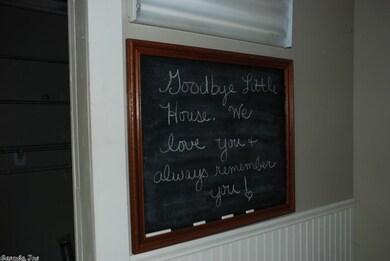 Goodbye Little
House. We
love you +
always remember
you!